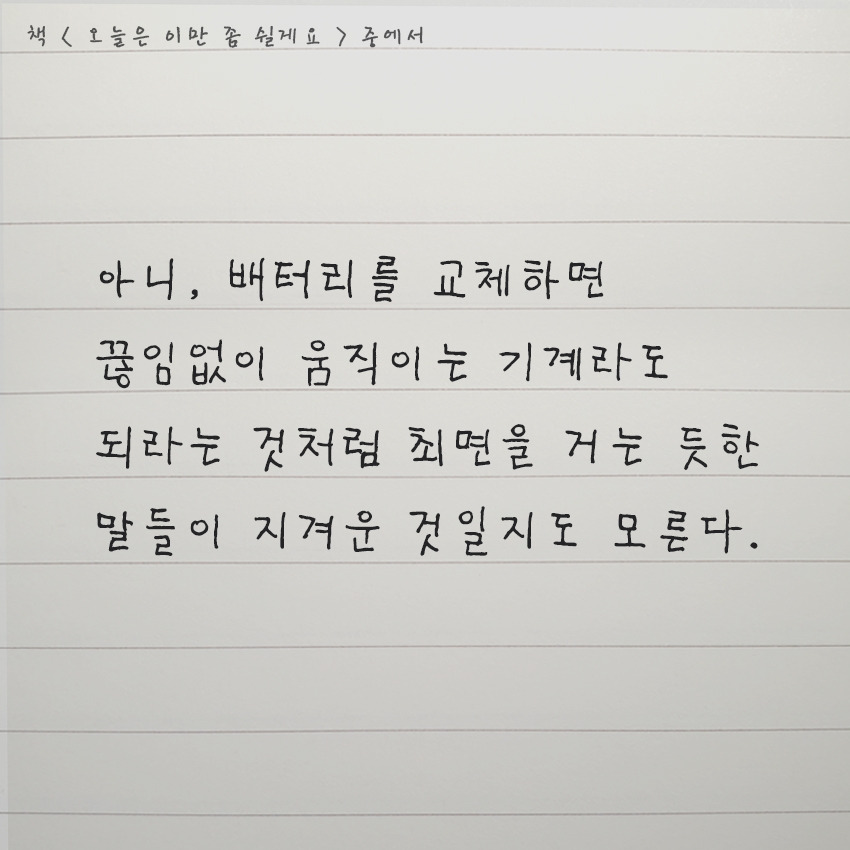 책 < 오늘은 이만 좀 쉴게요 > 중에서
아니, 배터리를 교체하면
끊임없이 움직이는 기계라도
되라는 것처럼 최면을 거는 듯한
말들이 지겨운 것일지도 모른다.